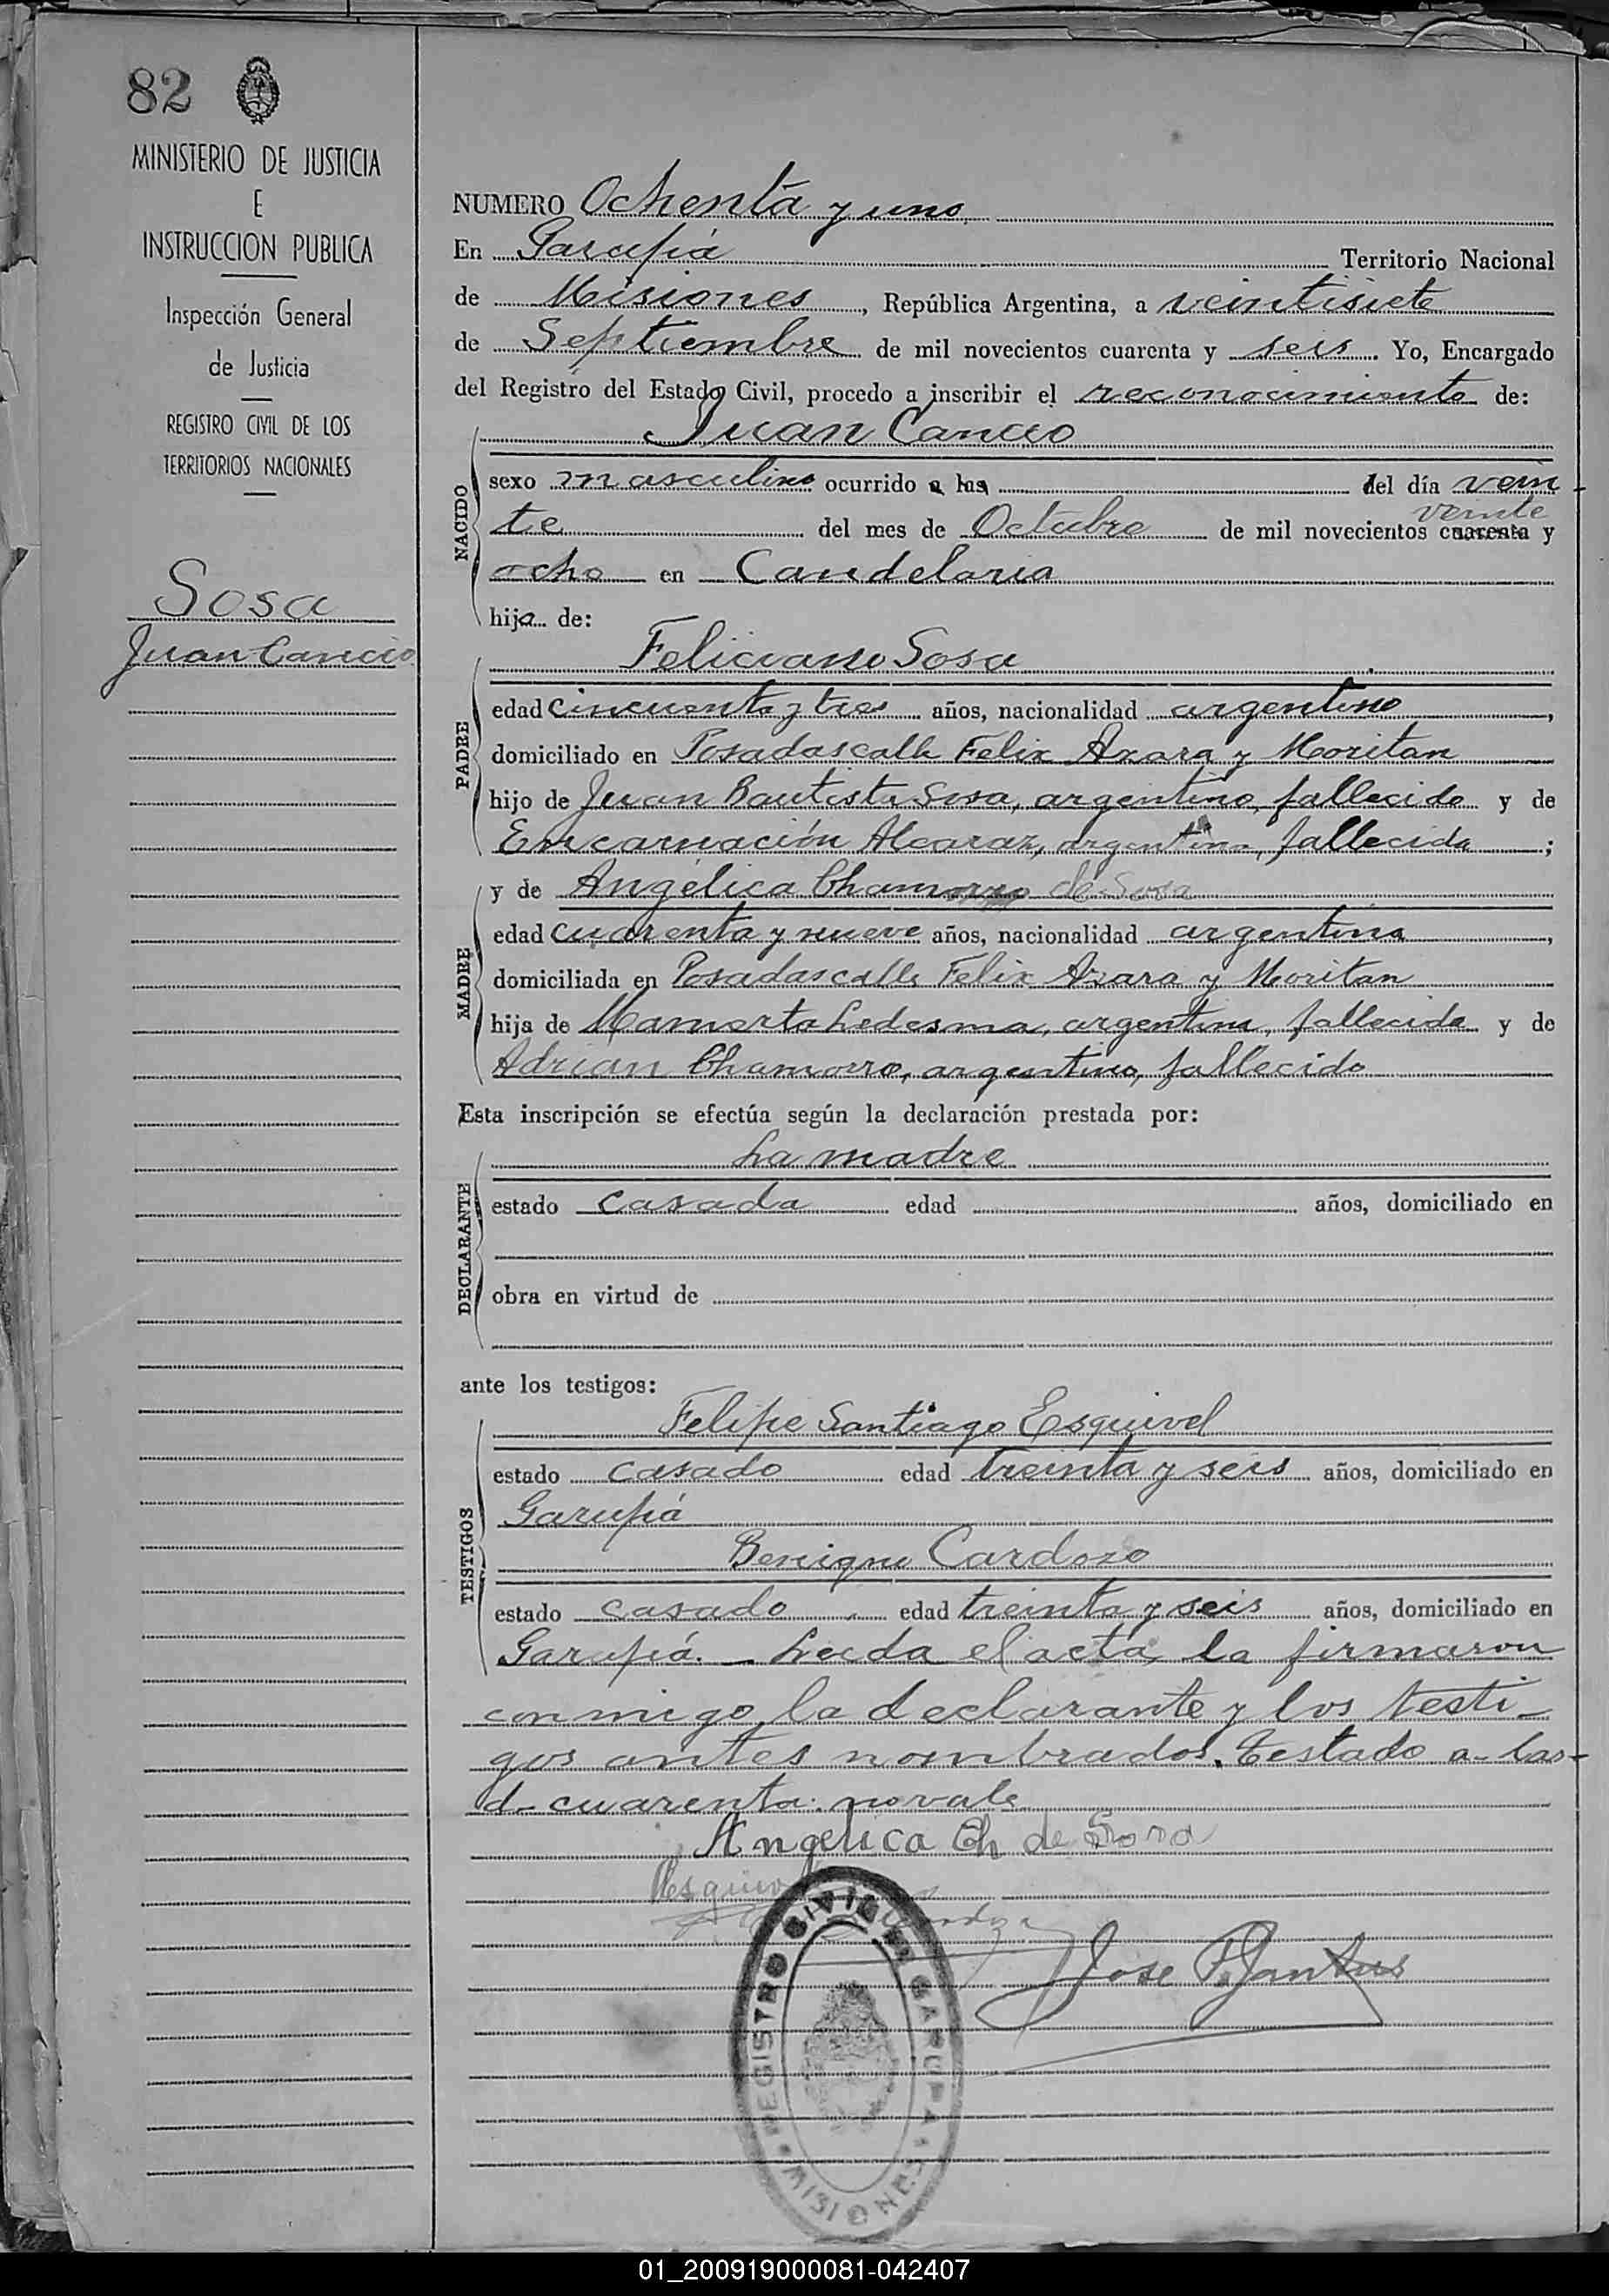 82
MINISTERIO DE JUSTICIA
E
INSTRUCCION PUBLICA
Inspección General
de Justicia
REGISTRO CIVIL DE LOS
TERRITORIOS NACIONALES
Sosa
Juan Cancio
NUMERO Ochenta y uno
En Garupá Territorio Nacional
de Misiones, República Argentina, a veintisiete
de Septiembre de mil novecientos cuarenta y seis. Yo, Encargado
del Registro del Estado Civil, procedo a inscribir el reconocimiento de:
Juan Cancio
NACIDO
sexo masculino ocurrido a las del día vein-
te del mes de Octubre de mil novecientos cuarenta y
veinte
ocho en Candelaria
hijo de:
Feliciano Sosa
PADRE
edad cincuenta y tres años, nacionalidad argentino,
domiciliado en Posadas calle Felix Azara y Moritan
hijo de Juan Bautista Sosa, argentino, fallecido y de
Encarnación Alcaraz, argentina, fallecida;
y de Angélica Chamorro de Sosa
MADRE
edad cuarenta y nueve años, nacionalidad argentina,
domiciliada en Posadas calle Felix Azara y Moritan
hija de Mamerta Ledesma, argentina, fallecida y de
Adrian Chamorro, argentino, fallecido
Esta inscripción se efectúa según la declaración prestada por:
La madre
DECLARANTE
estado casada edad años, domiciliado en
obra en virtud de
ante los testigos:
Felipe Santiago Esquivel
TESTIGOS
estado casado edad treinta y seis años, domiciliado en
Garupá
Benigno Cardozo
estado casado edad treinta y seis años, domiciliado en
Garupá. - Leída el acta, la firmaron
conmigo la declarante y los testi-
gos antes nombrados. Testado a-las-
d-cuarenta: no vale
Angelica Ch de Sosa
REGISTRO CIVIL DE GARUPA
MISIONES
01_200919000081-042407